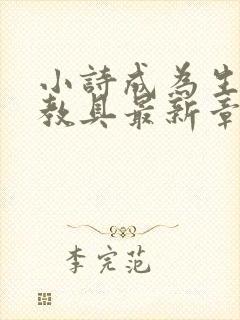 小詩成為生
教具最新章
李完范